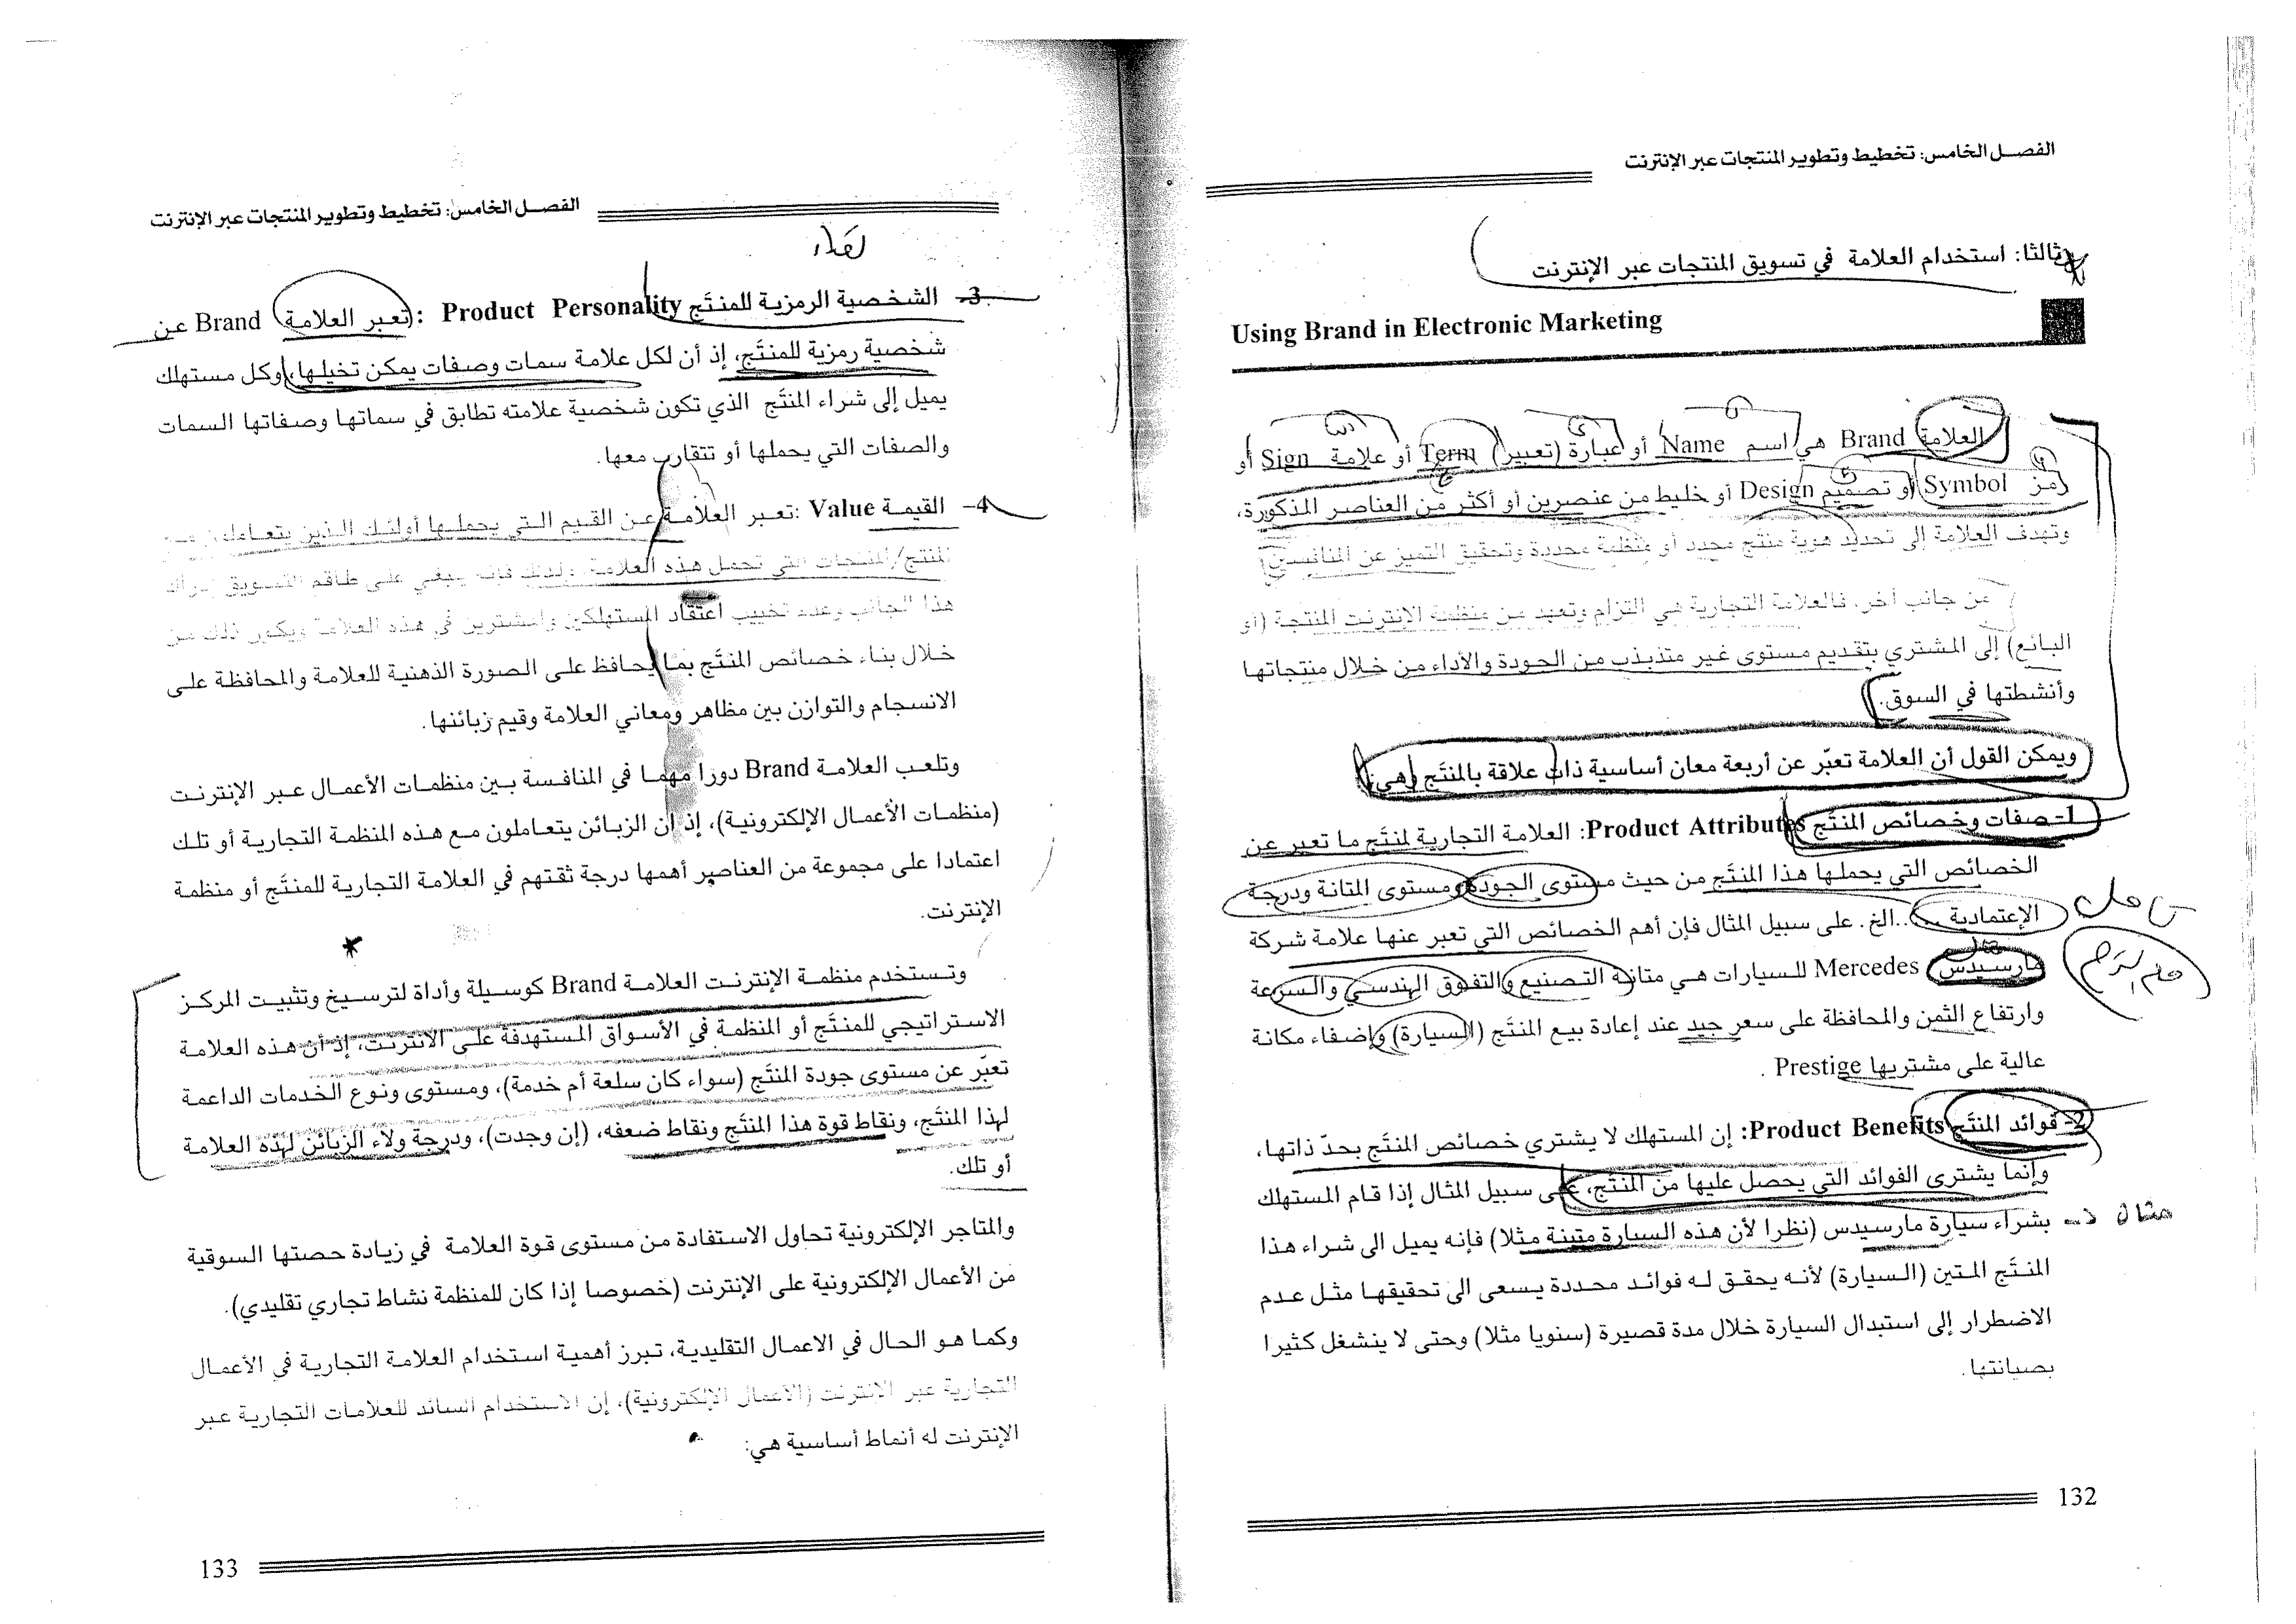 الفصل الخامس: تخطيط وتطوير المنتجات عبر الإنترنت
ثالثا: استخدام العلامة في تسويق المنتجات عبر الإنترنت
Using Brand in Electronic Marketing
العلامة Brand هي اسم Name أو عبارة (تعبير) Term أو علامة Sign أو
رمز Symbol أو تصميم Design أو خليط من عنصرين أو أكثر من العناصر المذكورة،
وتهدف العلامة إلى تحديد هوية منتج محدد أو منظمة محددة وتحقيق التميز عن المنافسين.
من جانب آخر، فالعلامة التجارية هي التزام وتعهد من منظمة الإنترنت المنتجة (أو
البائع) إلى المشتري بتقديم مستوى غير متذبذب من الجودة والأداء من خلال منتجاتها
وأنشطتها في السوق.
ويمكن القول أن العلامة تعبّر عن أربعة معان أساسية ذات علاقة بالمنتَج وهي:
1- صفات وخصائص المنتَج Product Attributes: العلامة التجارية لمنتَج ما تعبر عن
الخصائص التي يحملها هذا المنتَج من حيث مستوى الجودة ومستوى المتانة ودرجة
الإعتمادية ...الخ. على سبيل المثال فإن أهم الخصائص التي تعبر عنها علامة شركة
مارسيدس Mercedes للسيارات هي متانة التصنيع والتفوق الهندسي والسرعة
وارتفاع الثمن والمحافظة على سعر جيد عند إعادة بيع المنتَج (السيارة) وإضفاء مكانة
عالية على مشتريها Prestige .
2- فوائد المنتَج Product Benefits: إن المستهلك لا يشتري خصائص المنتَج بحدّ ذاتها،
وإنما يشتري الفوائد التي يحصل عليها من المنتَج، على سبيل المثال إذا قام المستهلك
مثال
بشراء سيارة مارسيدس (نظرا لأن هذه السيارة متينة مثلا) فإنه يميل الى شراء هذا
المنتَج المتين (السيارة) لأنه يحقق له فوائد محددة يسعى الى تحقيقها مثل عدم
الاضطرار إلى استبدال السيارة خلال مدة قصيرة (سنويا مثلا) وحتى لا ينشغل كثيرا
بصيانتها.
132
الفصل الخامس: تخطيط وتطوير المنتجات عبر الإنترنت
3- الشخصية الرمزية للمنتَج Product Personality : (تعبر العلامة Brand عن
شخصية رمزية للمنتَج، إذ أن لكل علامة سمات وصفات يمكن تخيلها، وكل مستهلك
يميل إلى شراء المنتَج الذي تكون شخصية علامته تطابق في سماتها وصفاتها السمات
والصفات التي يحملها أو تتقارب معها.
4- القيمة Value :تعبر العلامة عن القيم التي يحملها أولئك الذين يتعاملون مع
المنتج/المنتجات التي تحمل هذه العلامة، ولذلك فإنه ينبغي على طاقم التسويق إدراك
هذا الجانب وعدم تخييب اعتقاد المستهلكين والمشترين في هذه العلامة ويكون ذلك من
خلال بناء خصائص المنتَج بما يحافظ على الصورة الذهنية للعلامة والمحافظة على
الانسجام والتوازن بين مظاهر ومعاني العلامة وقيم زبائنها.
وتلعب العلامة Brand دورا مهما في المنافسة بين منظمات الأعمال عبر الإنترنت
(منظمات الأعمال الإلكترونية)، إذ أن الزبائن يتعاملون مع هذه المنظمة التجارية أو تلك
اعتمادا على مجموعة من العناصر أهمها درجة ثقتهم في العلامة التجارية للمنتَج أو منظمة
الإنترنت.
وتستخدم منظمة الإنترنت العلامة Brand كوسيلة وأداة لترسيخ وتثبيت المركز
الاستراتيجي للمنتَج أو المنظمة في الأسواق المستهدفة على الانترنت، إذ أن هذه العلامة
تعبّر عن مستوى جودة المنتَج (سواء كان سلعة أم خدمة)، ومستوى ونوع الخدمات الداعمة
لهذا المنتَج، ونقاط قوة هذا المنتَج ونقاط ضعفه، (إن وجدت)، ودرجة ولاء الزبائن لهذه العلامة
أو تلك.
والمتاجر الإلكترونية تحاول الاستفادة من مستوى قوة العلامة في زيادة حصتها السوقية
من الأعمال الإلكترونية على الإنترنت (خصوصا إذا كان للمنظمة نشاط تجاري تقليدي).
وكما هو الحال في الاعمال التقليدية، تبرز أهمية استخدام العلامة التجارية في الأعمال
التجارية عبر الانترنت (الأعمال الإلكترونية)، إن الاستخدام السائد للعلامات التجارية عبر
الإنترنت له أنماط أساسية هي:
133